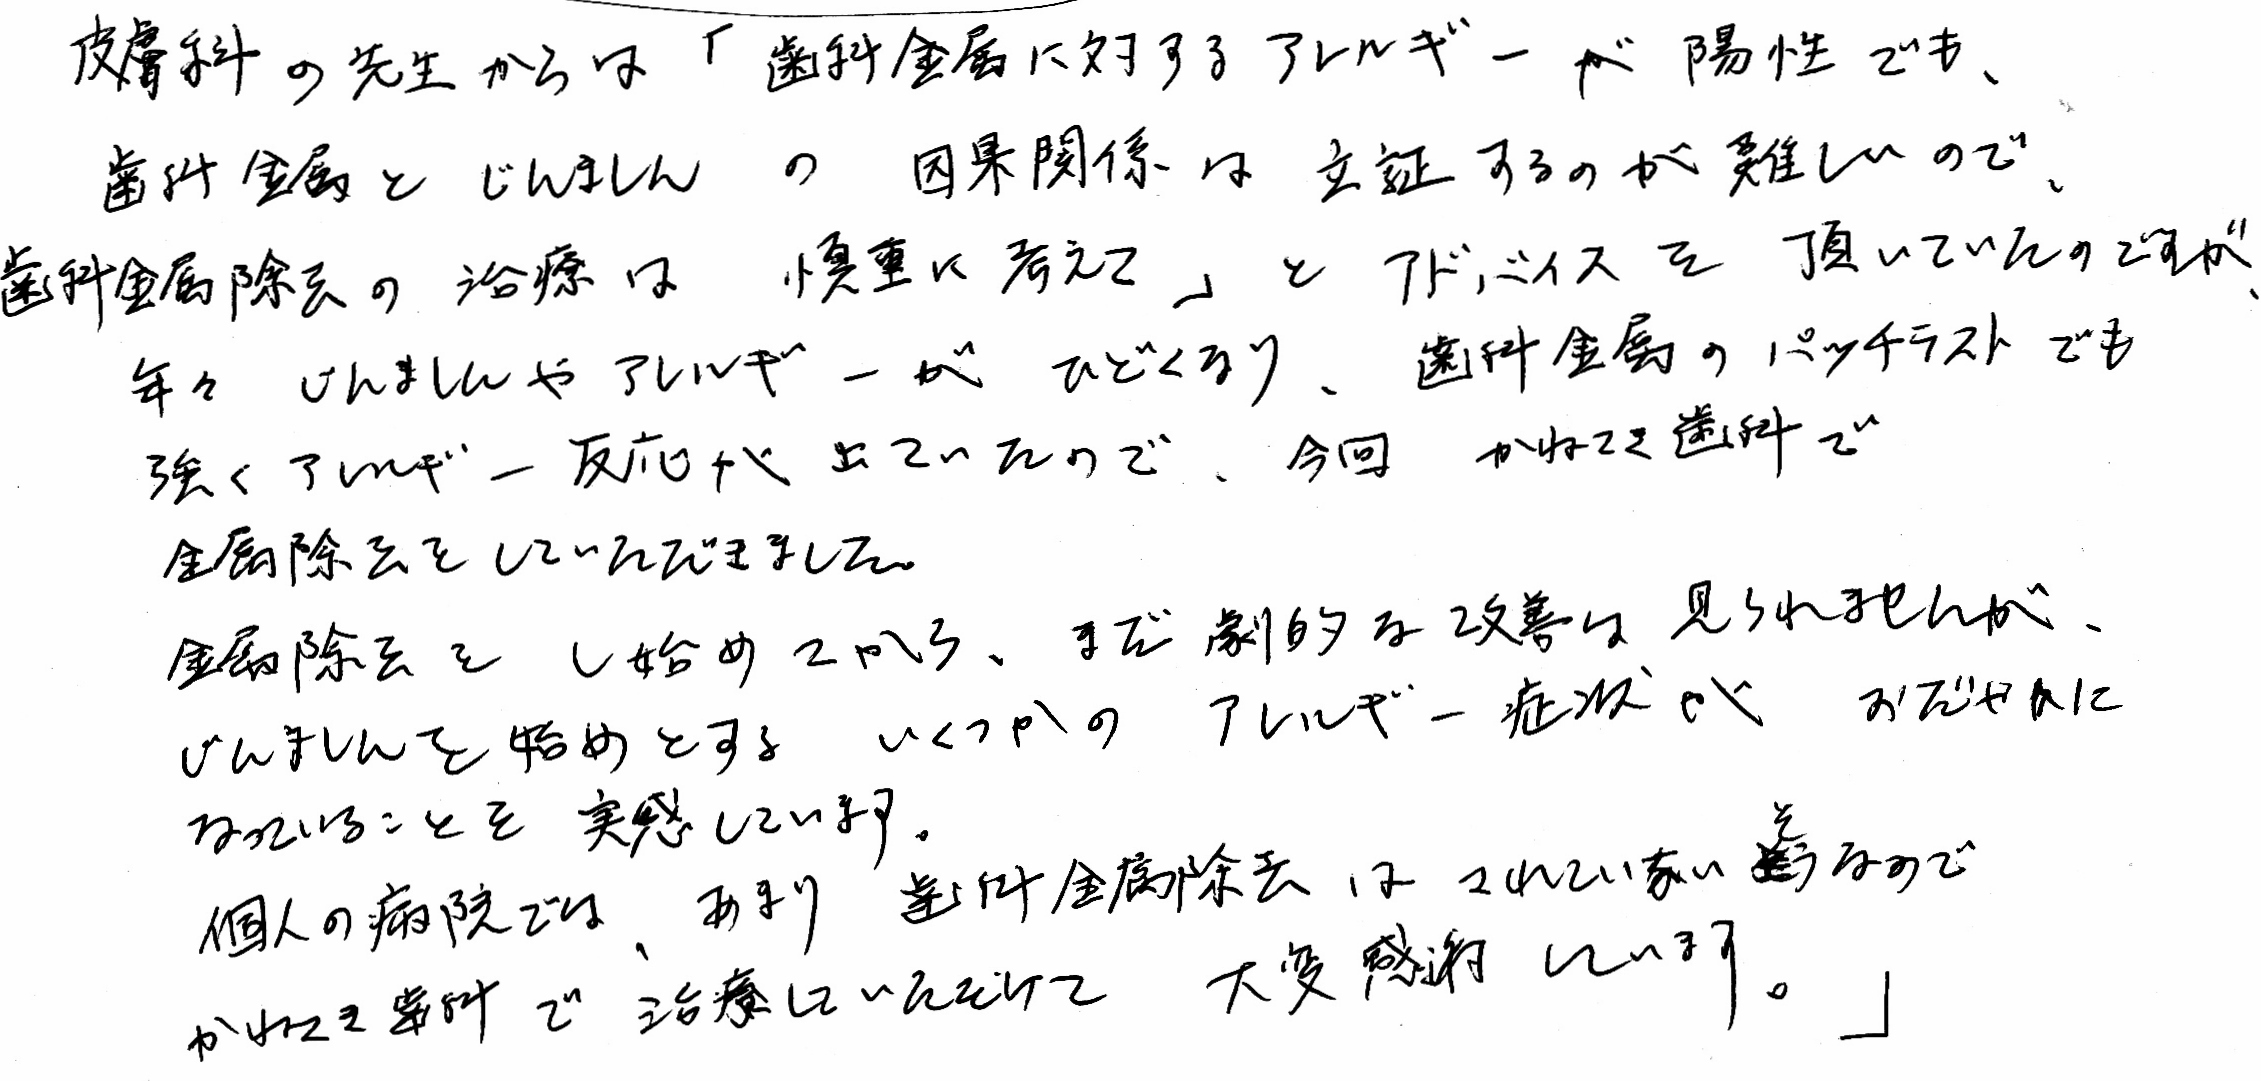 皮膚科の先生からは「歯科金属に対するアレルギーが陽性でも、
歯科金属とじんましんの因果関係は立証するのが難しいので、
歯科金属除去の治療は慎重に考えて」とアドバイスを頂いていたのですが、
年々じんましんやアレルギーがひどくなり、歯科金属のパッチテストでも
強くアレルギー反応が出ていたので、今回かねこ歯科で
金属除去をしていただきました。
金属除去をし始めてから、まだ劇的な改善は見られませんが、
じんましんを始めとするいくつかのアレルギー症状がおだやかに
なっていることを実感しています。
個人の病院では、あまり歯科金属除去はされていないそうなので
歯科で治療していただけて大変感謝しています。」